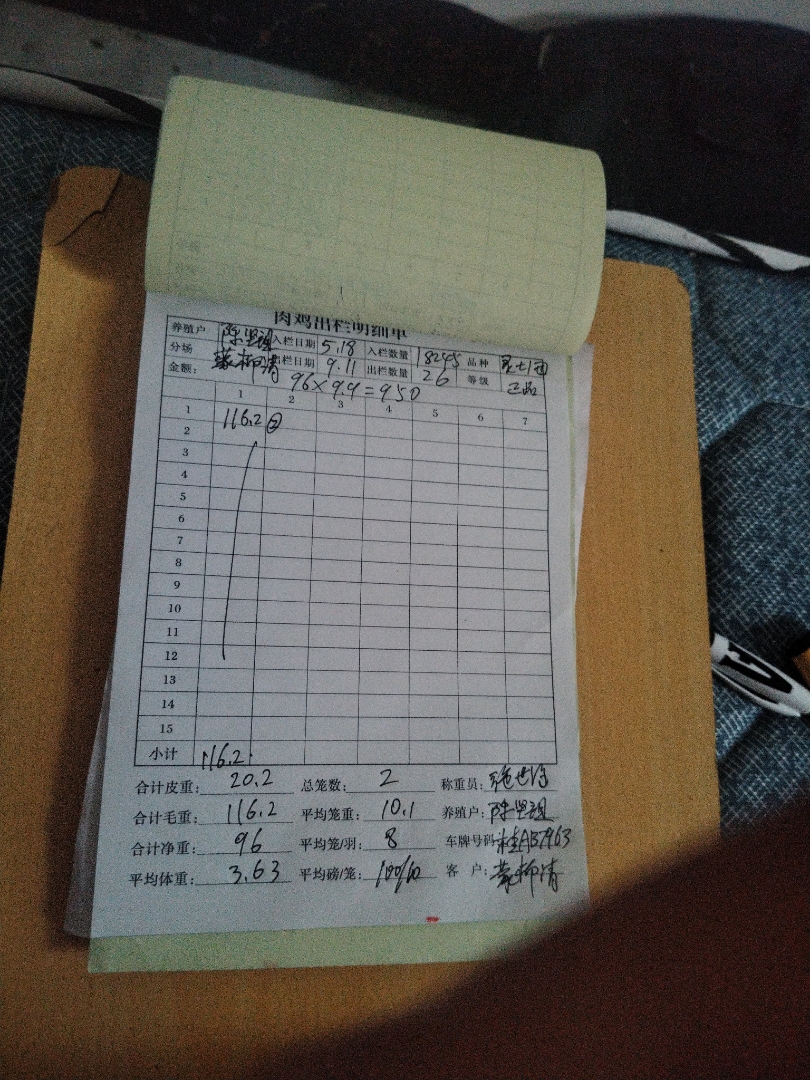 肉鸡出栏明细单
养殖户 陈坚强 入栏日期 5.18 入栏数量 18295 品种
分场 蒙柳清 出栏日期 9.11 出栏数量 26 等级 正品
金额: 96×9.9=950
1 2 3 4 5 6 7
1 116.2 ②
2
3
4
5
6
7
8
9
10
11
12
13
14
15
小计 116.2
合计皮重: 20.2 总笼数: 2 称重员:
合计毛重: 116.2 平均笼重: 10.1 养殖户:
合计净重: 96 平均笼/羽: 8 车牌号码: 桂AB7963
平均体重: 3.63 平均磅/笼: 客户: 蒙柳清